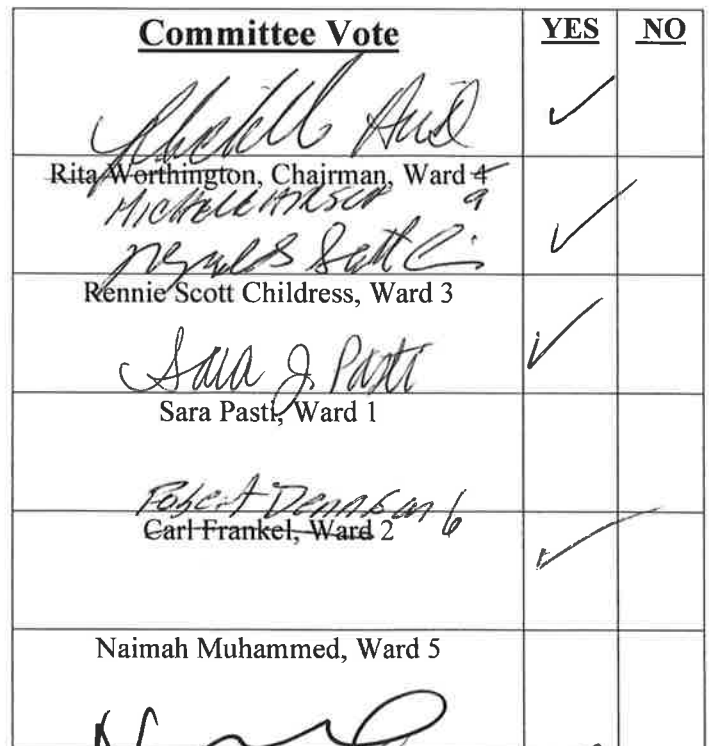 Committee Vote YES NO
Rita Worthington, Chairman, Ward 4
9
Rennie Scott Childress, Ward 3
Sara J. Pasti
Sara Pasti, Ward 1
Robert Dennison 6
Carl Frankel, Ward 2
Naimah Muhammed, Ward 5